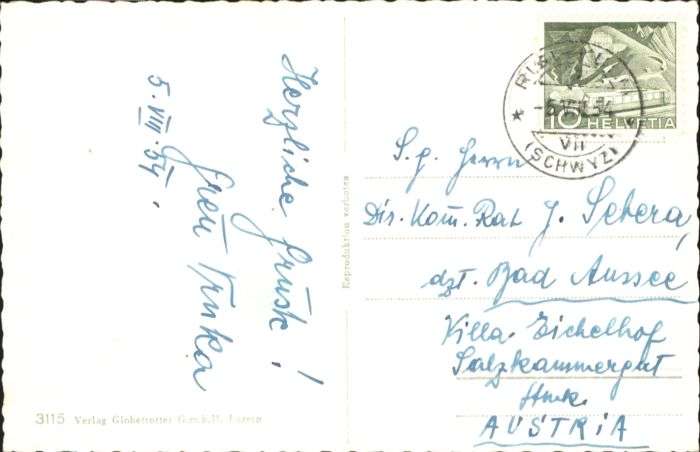 Herzliche Grüsse!
5. VIII. 54.
Trnka
S. g. Herrn
Dir. Kom. Rat J. Sebera,
dzt. Bad Aussee
Villa Eichelhof
Salzkammergut
Stmk.
AUSTRIA
10 HELVETIA
VII
(SCHWYZ)
Reproduktion verboten
3115 Verlag Globetrotter G.m.b.H. Luzern